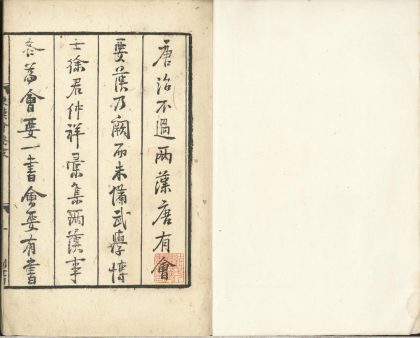 唐治不過兩漢唐有會
要漢乃闕而未備武學博
士徐君仲祥彙集兩漢事
本為會要一書會要有書